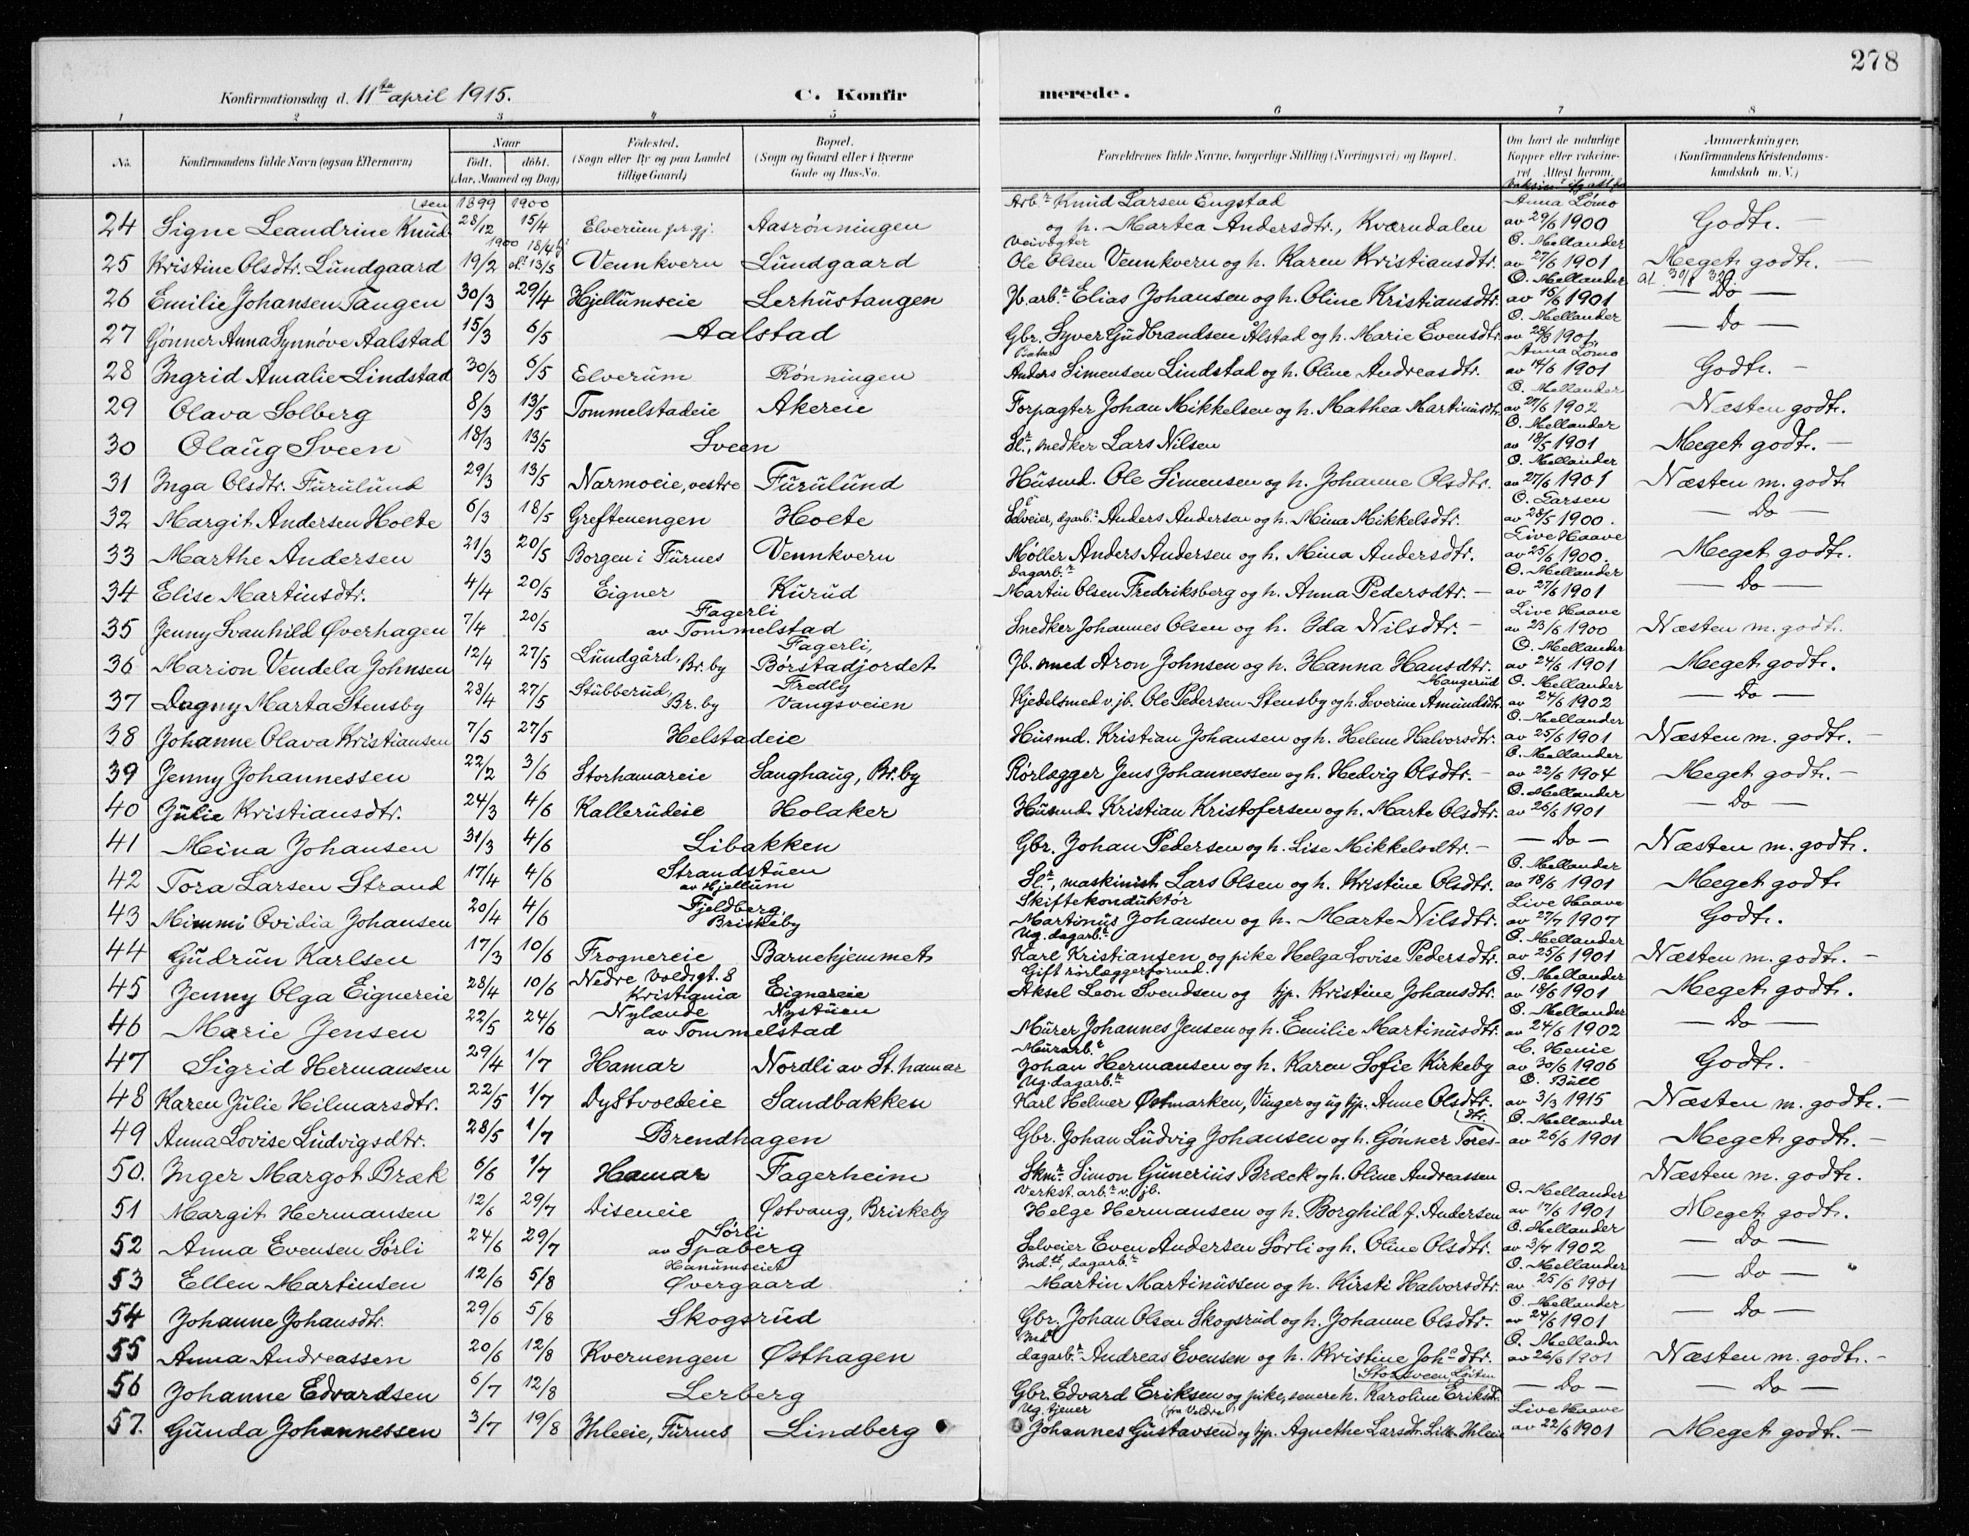 278
Konfirmationsdag d. 11te april 1915. C. Konfirmerede.
1 2 3 4 5 6 7 8
No. Konfirmandens fulde Navn (ogsaa Efternavn) Naar født. døbt. (Aar, Maaned og Dag) Fødested. (Sogn eller By og paa Landet tillige Gaard) Bopæl. (Sogn og Gaard eller i Byerne Gade og Hus-No. Forældrenes fulde Navne, borgerlige Stilling (Næringsvei) og Bopæl. Om havt de naturlige Kopper eller vakcineret. Attest herom. Anmærkninger. (Konfirmandens Kristendomskundskab m. V.)
24 Signe Leandrine Knudsen 1899 28/12 1900 15/4 Elverum pr.gj. Aasrønningen Arb.r Knud Larsen Engstad og h. Martea Andersdtr., Kværndalen Anna Lømo av 29/6 1900 Godt. —
25 Kristine Olsdtr. Lundgaard 1900 19/2 13/5 Vennkvern Lundgaard Veivogter Ole Olsen Vennkvern og h. Karen Kristiansdtr. O. Mellander av 27/6 1901 Meget godt. —
26 Emilie Johansen Tangen 30/3 29/4 Hjellumseie Lerhustangen Jb. arb.r Elias Johansen og h. Oline Kristiansdtr. O. Mellander av 15/6 1901 — Do —
27 Gønner Anna Synnøve Aalstad 15/3 6/5 Aalstad Gbr. Syver Gudbrandsen Ålstad og h. Marie Evensdtr. O. Mellander av 28/6 1901 — Do —
28 Ingrid Amalie Lindstad 30/3 6/5 Elverum Rønningen Anders Simensen Lindstad og h. Oline Andreasdtr. Anna Lømo av 14/6 1901 Godt. —
29 Olava Solberg 8/3 13/5 Tommelstadeie Akereie Forpagter Johan Mikkelsen og h. Mathea Martinusdtr. O. Mellander av 27/6 1902 Næsten godt.
30 Olaug Sveen 18/3 13/5 Sveen Sl.r, snedker Lars Nilsen O. Mellander av 18/5 1901 Meget godt. —
31 Inga Olsdtr. Furulund 29/3 13/5 Narmoeie, vestre Furulund Husmd. Ole Simensen og h. Johanne Olsdtr. O. Mellander av 27/6 1901 Næsten m. godt
32 Margit Andersen Holte 6/3 18/5 Greftenengen Holte Selveier, dgarb.r Anders Andersen og h. Mina Mikkelsdtr. O. Larsen av 28/5 1900. — Do —
33 Marthe Andersen 21/3 20/5 Borgen i Furnes Vennkvern Møller Anders Andersen og h. Mina Andersdtr. Live Haave av 25/6 1900. Meget godt.
34 Elise Martinsdtr. 4/4 20/5 Eigner Kurud Dagarb.r Martin Olsen Fredriksberg og h. Anna Pedersdtr. — O. Mellander av 27/6 1901 — Do —
35 Jenny Svanhild Øverhagen 7/4 20/5 Fagerli av Tommelstad Snedker Johannes Olsen og h. Ida Nilsdtr. — Live Haave av 23/6 1900 Næsten m. godt.
36 Marion Vendela Johnsen 12/4 27/5 Lundgård, Br.by Fagerli, Børstadjordet Jb. smed Aron Johnsen og h. Hanna Hansdtr. O. Mellander av 24/6 1901 Meget godt.
37 Dagny Marta Stensby 28/4 27/5 Stubberud, Br.by Fredly Vangsveien Kjedelsmed v. jb. Ole Pedersen Stensby og h. Severine Amundsdtr. Mangerud O. Mellander av 24/6 1902 — Do —
38 Johanne Olava Kristiansen 7/5 27/5 Helstadeie Husmd. Kristian Johansen og h. Helene Halvorsdtr. O. Mellander av 25/6 1901 Næsten m. godt. —
39 Jenny Johannessen 22/2 3/6 Storhamareie Sanghaug, Br.by Rørlægger Jens Johannessen og h. Hedvig Olsdtr. — O. Mellander av 22/6 1904 Meget godt. —
40 Julie Kristiansdtr. 24/3 4/6 Kallerudeie Holaker Husmd. Kristian Kristofersen og h. Marte Olsdtr. O. Mellander av 26/6 1901 — Do —
41 Mina Johansen 31/3 4/6 Libakken Gbr. Johan Pedersen og h. Lise Mikkelsdtr. — — Do — Næsten m. godt.
42 Tora Larsen Strand 17/4 4/6 Strandstuen av Hjellum Sl.r, maskinist Lars Olsen og h. Kristine Olsdtr. O. Mellander av 18/6 1901 Meget godt
43 Mimmi Ovidia Johansen 20/4 4/6 Fjeldberg, Briskeby Skiftekonduktør Martinus Johansen og h. Marte Nilsdtr. Live Haave av 27/7 1907 Godt.
44 Gudrun Karlsen 17/3 10/6 Frognereie Barnehjemmet Ug. dagarb.r Karl Kristiansen og pike Helga Lovise Pedersdtr. O. Mellander av 25/6 1901 Næsten m. godt. —
45 Jenny Olga Eignereie 28/4 10/6 Nedre Voldgt. 8 Kristiania Eignereie Gift rørlæggerformd. Aksel Leon Svendsen og tjp. Kristine Johansdtr. O. Mellander av 18/6 1901 Meget godt.
46 Marie Jensen 22/5 24/6 Nylænde Nystuen av Tommelstad Murer Johannes Jensen og h. Emilie Martinusdtr. O. Mellander av 24/6 1902 — Do —
47 Sigrid Hermansen 29/4 1/7 Hamar Nordli av St. hamar Murarb.r Johan Hermansen og h. Karen Sofie Kirkeby C. Henie av 30/6 1906 Godt. —
48 Karen Julie Hilmarsdtr. 22/5 1/7 Dystvoldeie Sandbakken Ug. dagarb.r Karl Helmer Østmarken, Vinger og ug tjp. Anne Olsdtr. O. Bull av 3/3 1915 Næsten m. godt. —
49 Anna Lovise Ludvigsdtr. 28/5 1/7 Brendhagen Gbr. Johan Ludvig Johansen og h. Gønner Toresdtr. O. Mellander av 26/6 1901 Meget godt. —
50. Inger Margot Bræk 6/6 1/7 Hamar Fagerheim Skm.r Simon Gunerius Bræck og h. Oline Andreassen Næsten m. godt.
51 Margit Hermansen 12/6 29/7 Diseneie Østvang, Briskeby Verkst. arb.r v. jb. Helge Hermansen og h. Borghild f. Andersen O. Mellander av 17/6 1901 Meget godt.
52 Anna Evensen Sörli 24/6 29/7 Sörli av Spaberg Selveier Even Andersen Sørli og h. Oline Olsdtr. O. Mellander av 3/7 1902 — Do —
53 Ellen Martinsen 12/6 5/8 Hanumseiet Øvergaard Indst., dagarb.r Martin Martinussen og h. Kirsti Halvorsdtr. O. Mellander av 25/6 1901 — Do —
54 Johanne Johansdtr. 29/6 5/8 Skogsrud Gbr. Johan Olsen Skogsrud og h. Johanne Olsdtr. O. Mellander av 24/6 1901 — Do —
55 Anna Andreassen 20/6 12/8 Kvernengen Østhagen dagarb.r Andreas Evensen og h. Kristine Joh.s dtr. O. Mellander av 26/6 1901 Næsten m. godt. —
56 Johanne Edvardsen 6/7 12/8 Lerberg Gbr. Edvard Eriksen og pike, senere h. Karoline Eriksdtr. Storsveen Løiten — Do — — Do —
57. Gunda Johannessen 3/7 19/8 Ihleeie, Furnes Lindberg Ug. tjener Johannes Gustavsen (fra Voldre) og tjp. Agnethe Larsdtr. Lill-Ihleie Live Haave av 22/6 1901 Meget godt. —